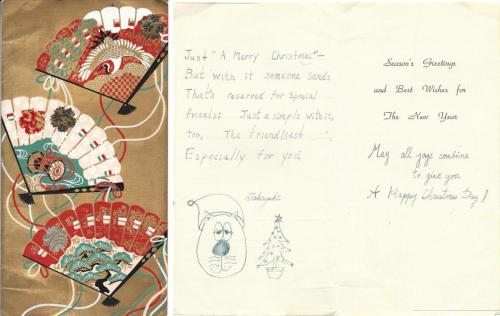 Just "A Merry Christmas"—
But with it someone sends
That's reserved for special
friends; Just a simple with it,
too, The Friendliest
Especially for you
Takayuki
Season's Greetings
and Best Wishes for
The New Year
May all joys combine
to give you
A Happy Christmas Day!